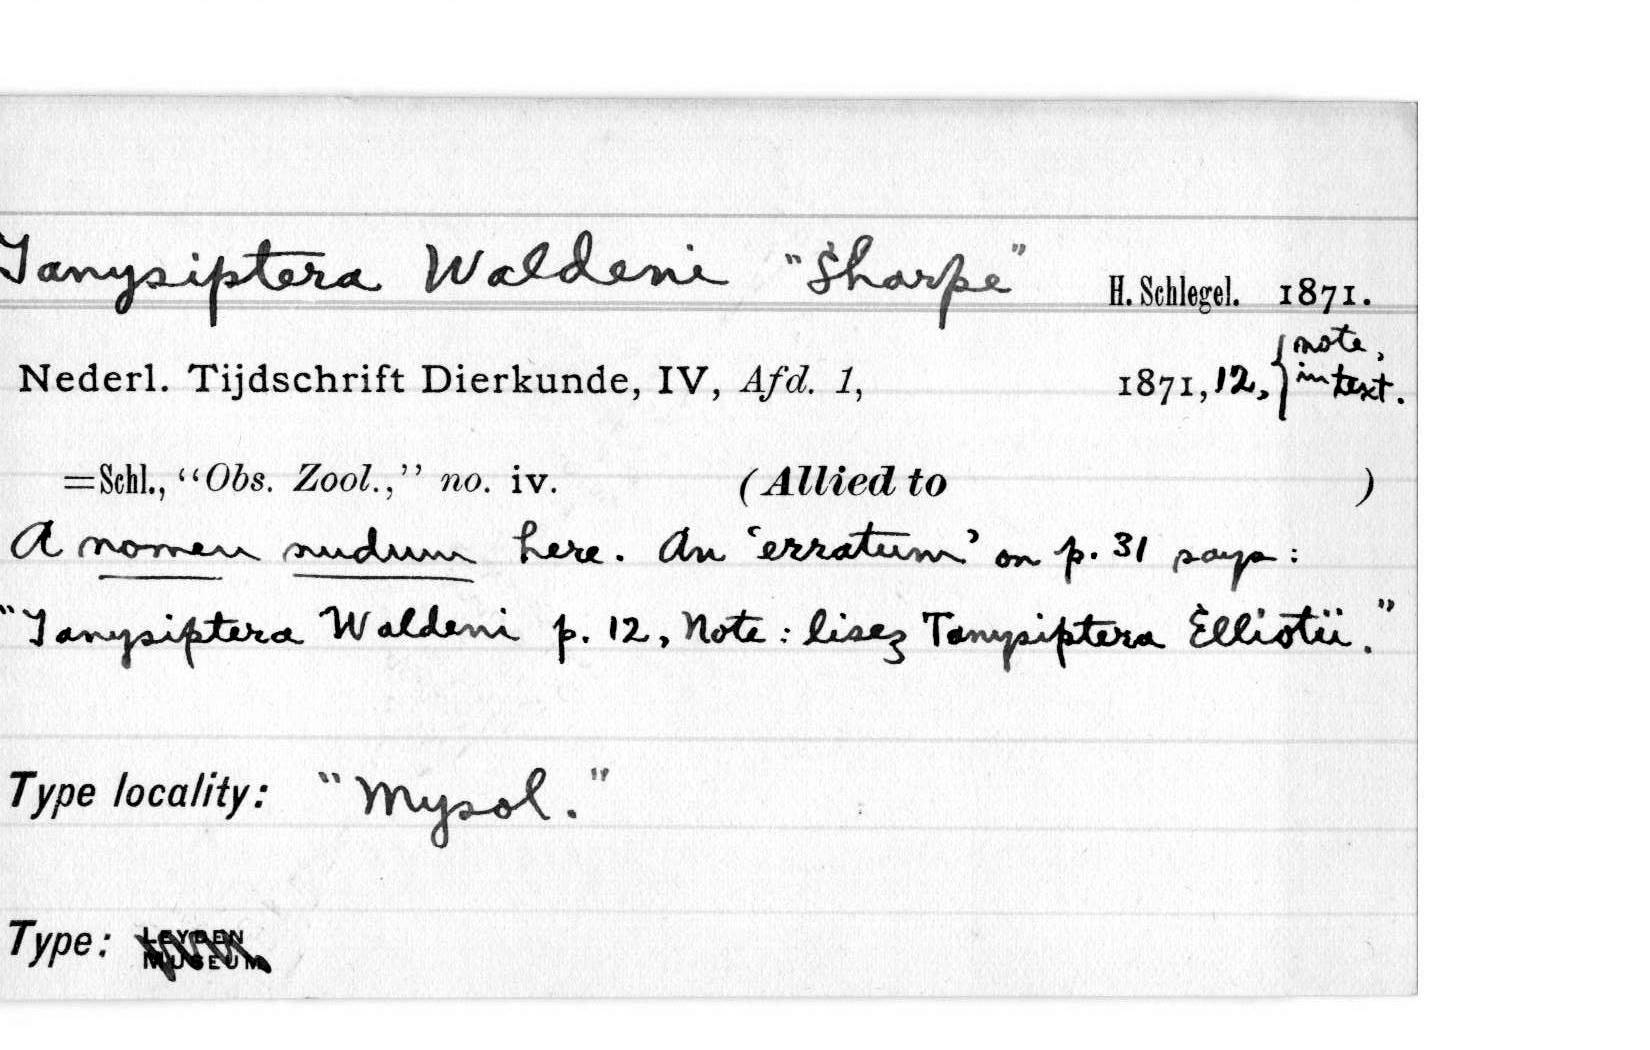 Tanysiptera Waldeni "Sharpe" H. Schlegel. 1871.
Nederl. Tijdschrift Dierkunde, IV, Afd. 1, 1871, 12, { note, in text.
=Schl., "Obs. Zool.," no. iv. (Allied to )
A nomen nudum here. An 'erratum' on p. 31 says:
"Tanysiptera Waldeni p. 12, Note: lisez Tanysiptera Elliotii."
Type locality: "Mysol."
Type: LEYDEN
MUSEUM